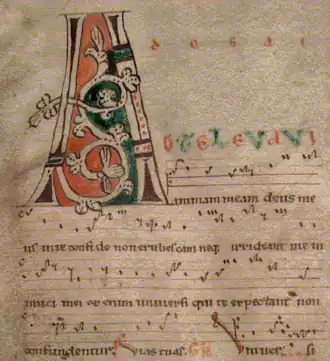 A
D TE LEVAVI
animam meam deus me
us in te confido non erubescam neq irrideant me in
imici mei et enim universi qui te expectant non
confundentur Vias tuas GR Univer si